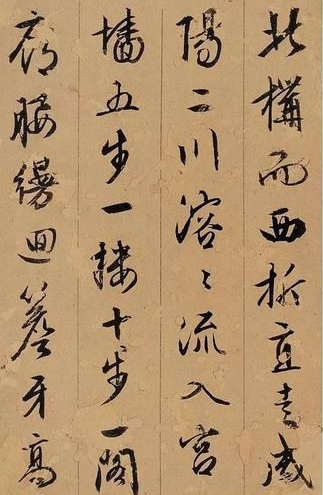 北構而西折直走咸
陽二川溶〻流入宮
墻五步一樓十步一閣
廊腰縵迴簷牙高